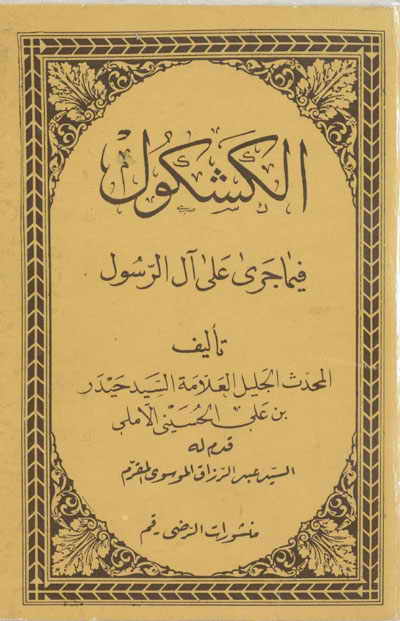 الكشكول
فيما جرى على آل الرسول
تأليف
المحدث الجليل العلامة السيد حيدر
بن علي الحسيني الآملي
قدم له
السيد عبد الرزاق الموسوي المقرم
منشورات الرضي - قم